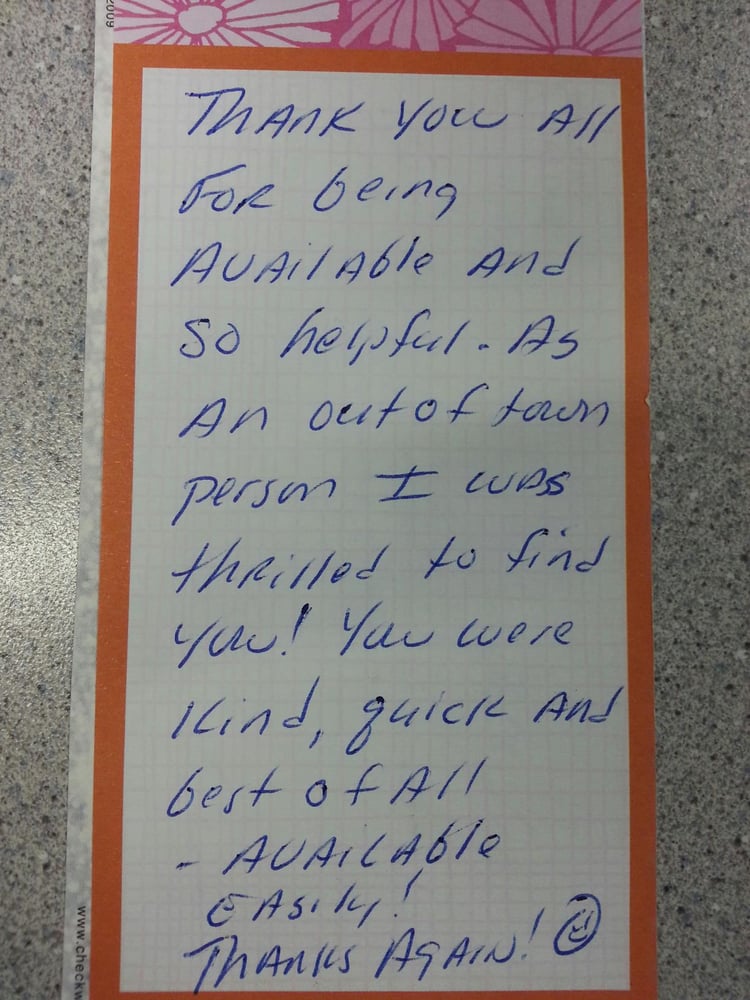 Thank you all
for being
available and
so helpful. As
an out of town
person I was
thrilled to find
you! You were
kind, quick and
best of all
- available
easily!
Thanks Again!
www.checkw
6002